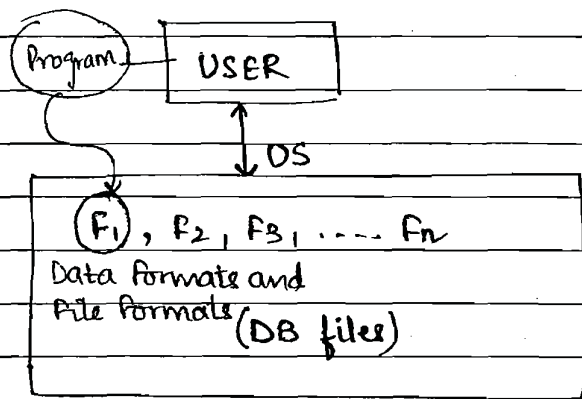 Program
USER
OS
F1, F2, F3, .... Fn
Data formats and
File formats (DB files)